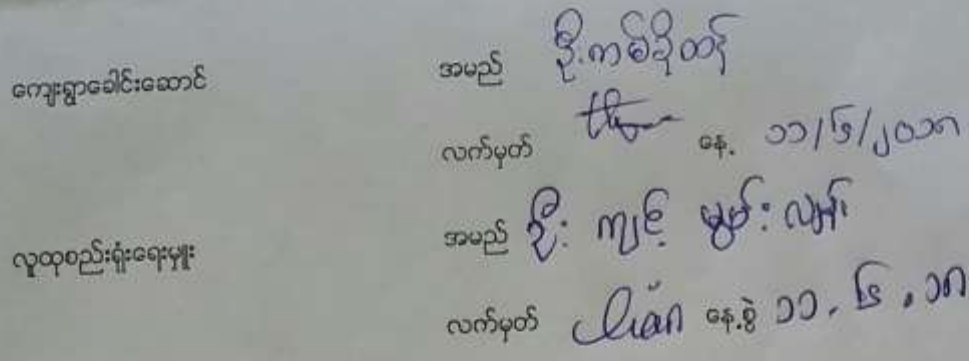 ကျေးရွာခေါင်းဆောင် အမည် ဦး.ကမ်ခိုတန်
လက်မှတ် နေ့. ၁၁/၆/၂၀၁၈
လူထုစည်းရုံးရေးမှူး အမည် ဦး
လက်မှတ် နေ့.စွဲ ၁၁.၆.၁၈